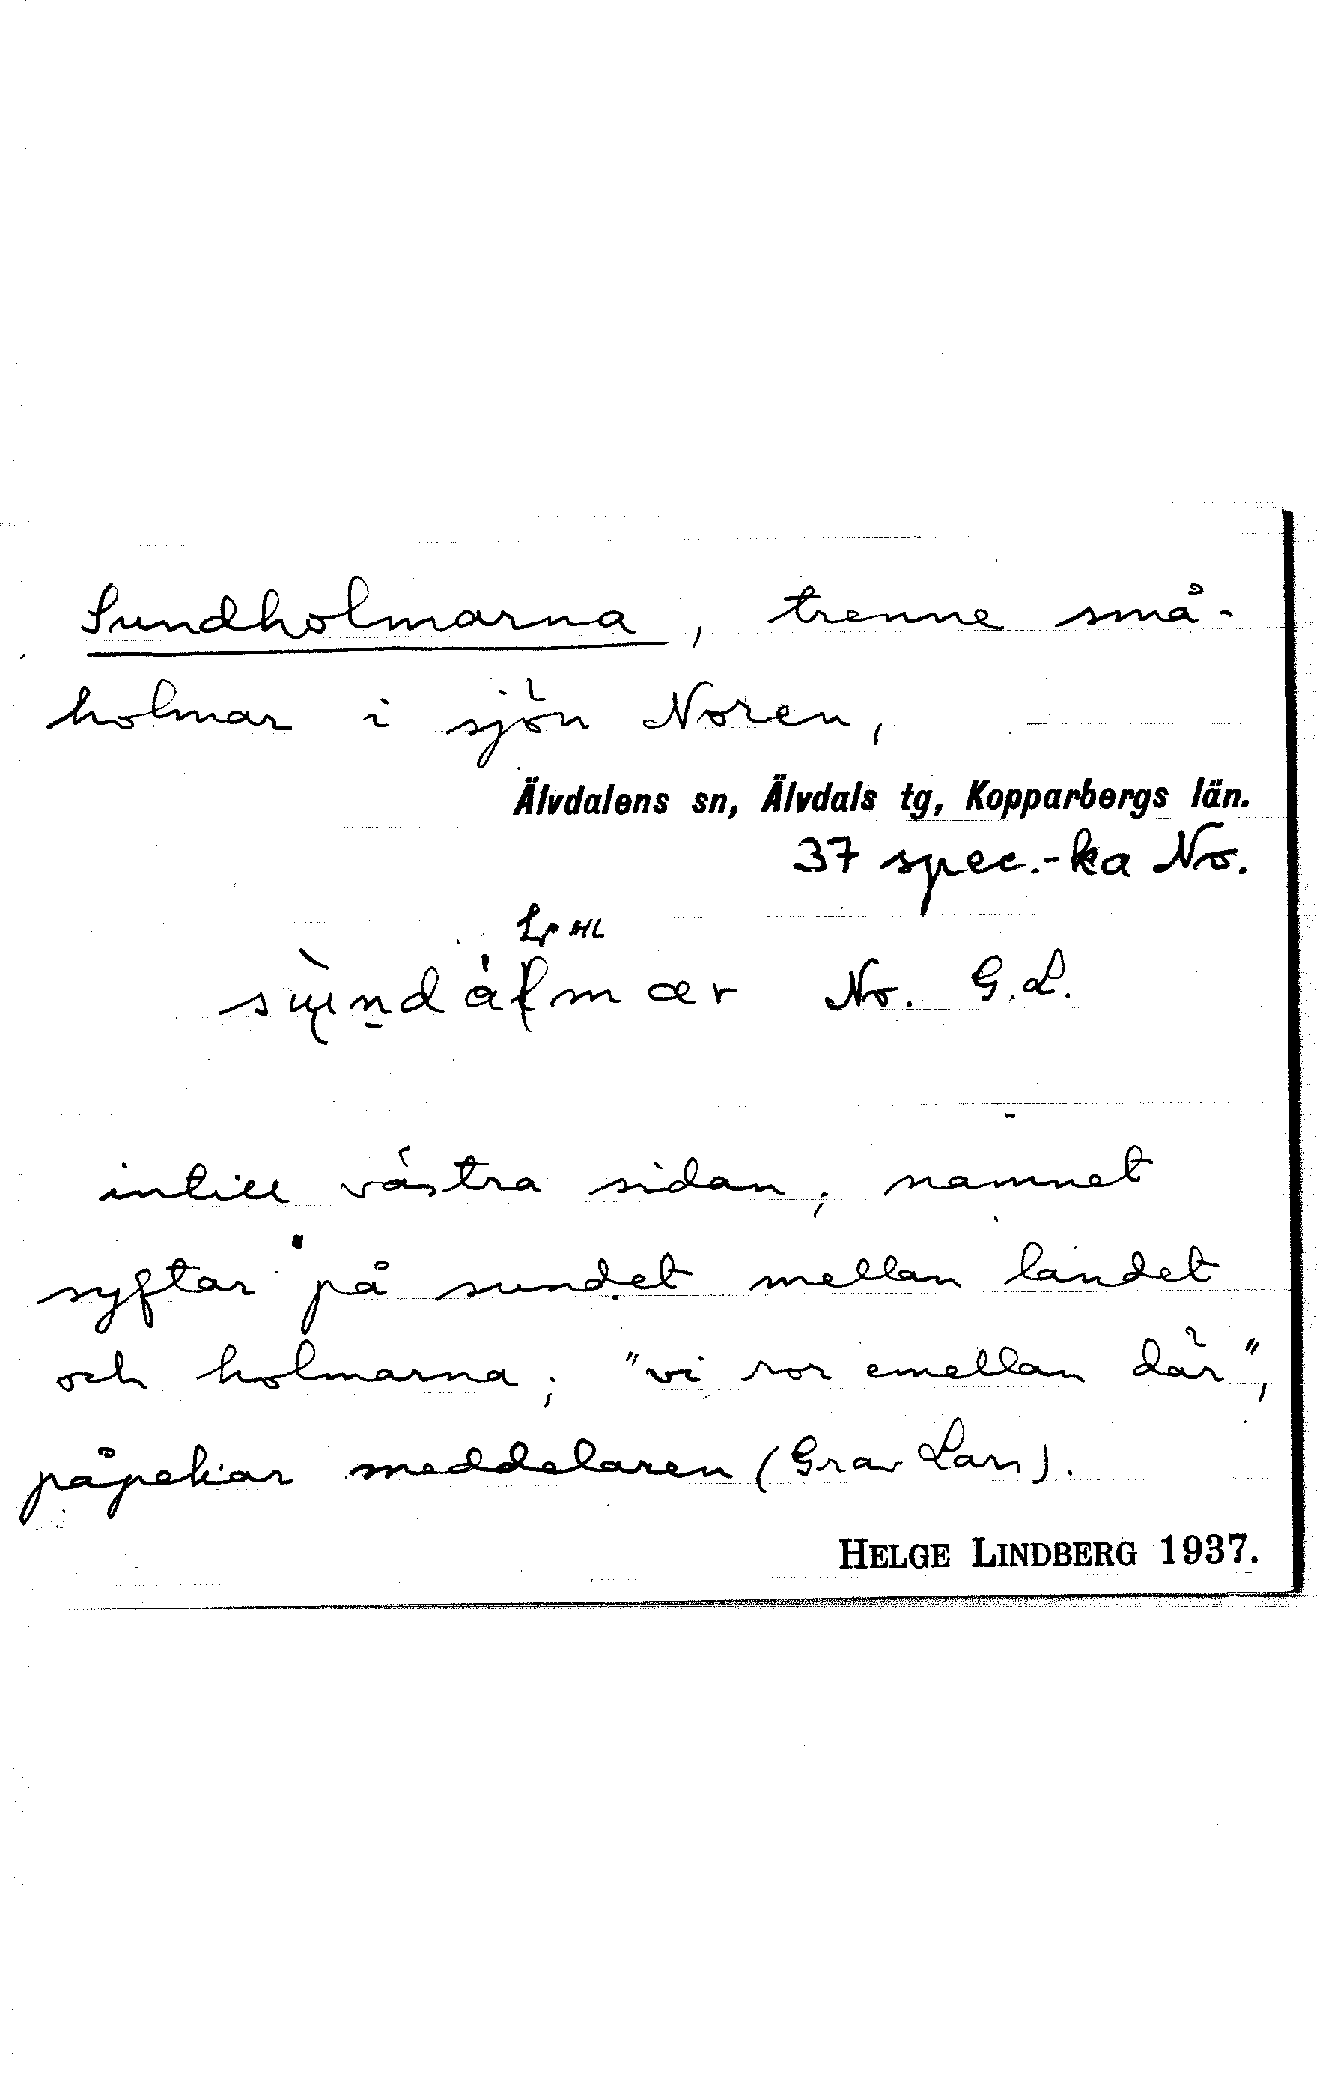 Sundholmarna, trenne små-
holmar i sjön Noren,
Älvdalens sn, Älvdals tg, Kopparbergs län.
37 spec.-ka No.
HL
No. G.L.
intill västra sidan; namnet
syftar på sundet mellan landet
och holmarna; "vi ror emellan där",
påpekar meddelaren (Grav Lars).
HELGE LINDBERG 1937.